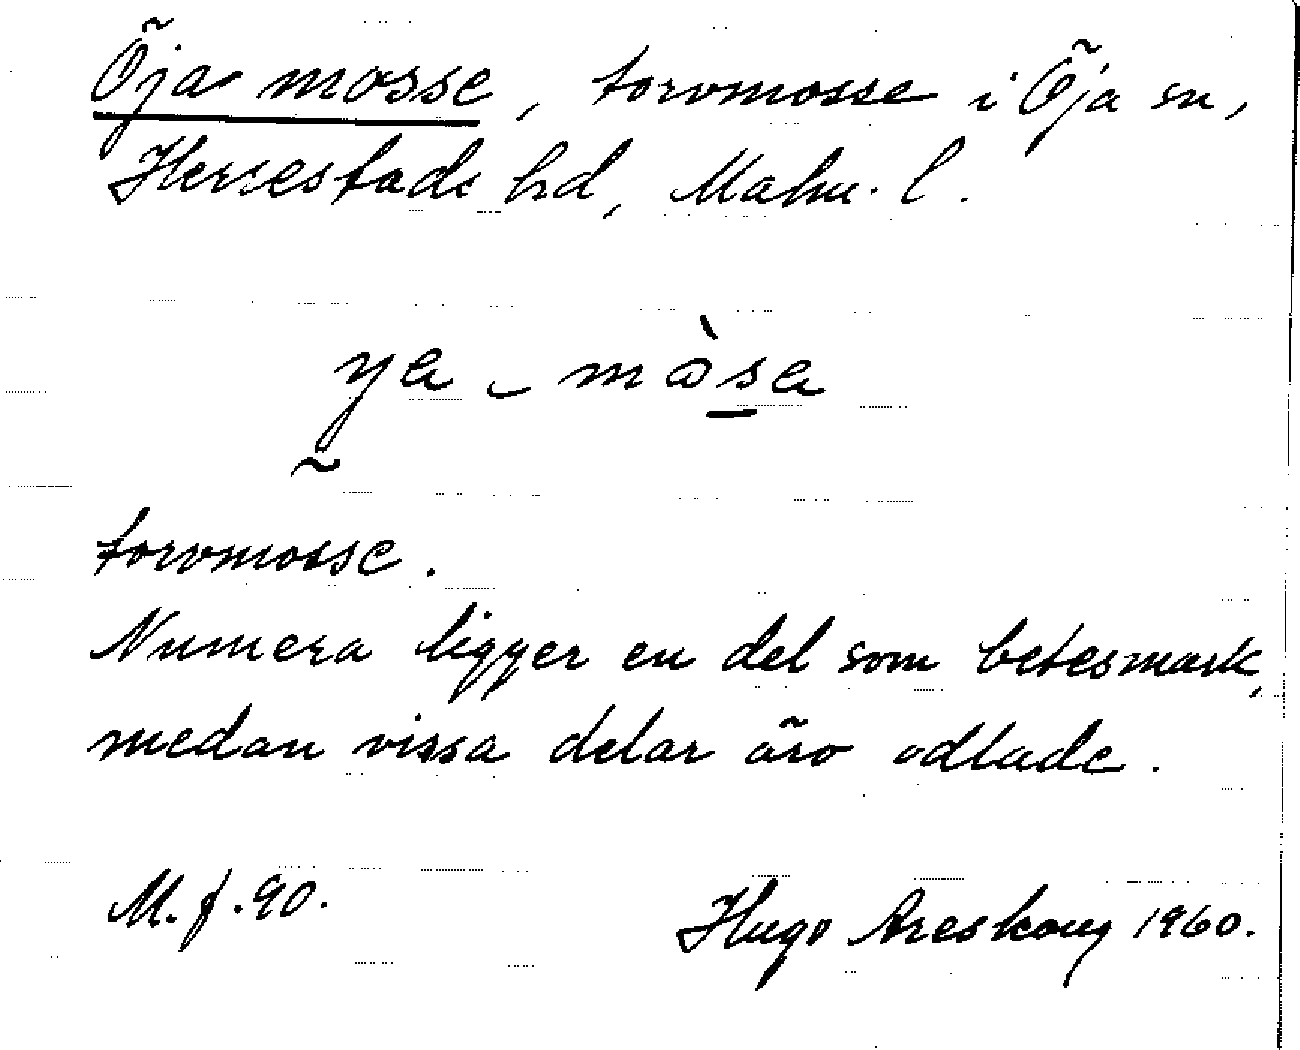 Öja mosse, torvmosse i Öja sn,
Herrestads hd, Malm. l.
ya - mòsa
torvmosse.
Numera ligger en del som betesmark,
medan vissa delar äro odlade.
M. f. 90.
Hugo Areskoug 1960.